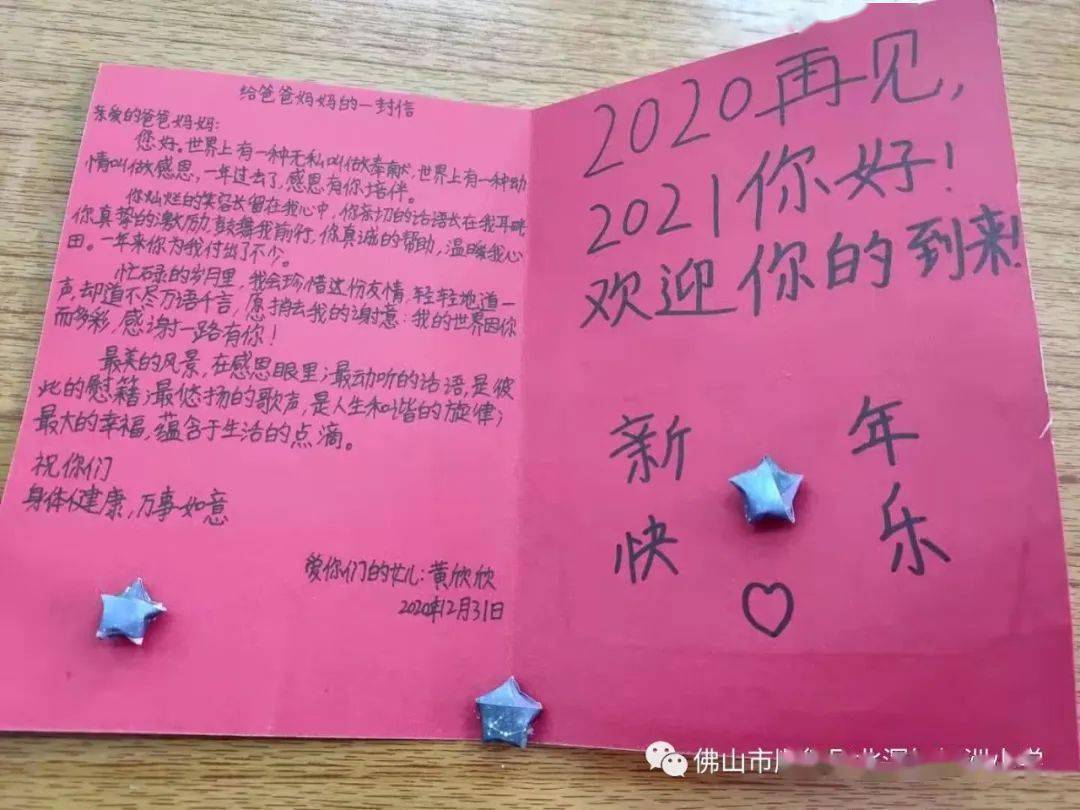 给爸爸妈妈的一封信
亲爱的爸爸妈妈:
您好。世界上有一种无私叫做奉献,世界上有一种动
情叫做感恩,一年过去了,感恩有你培伴。
你灿烂的笑容长留在我心中,你亲切的话语长在我耳畔
你真挚的激励,鼓舞我前行,你真诚的帮助,温暖我心
田。一年来你为我付出了不少。
忙碌的岁月里,我会珍惜这份友情,轻轻地道一
声,却道不尽万语千言,愿捎去我的谢意:我的世界因你
而多彩,感谢一路有你!
最美的风景,在感恩眼里;最动听的话语,是彼
此的慰籍;最悠扬的歌声,是人生和谐的旋律;
最大的幸福,蕴含于生活的点滴。
祝你们
身体健康,万事如意
爱你们的女儿:黄欣欣
2020年12月31日
2020再见,
2021你好!
欢迎你的到来!
新年
快乐
佛山市